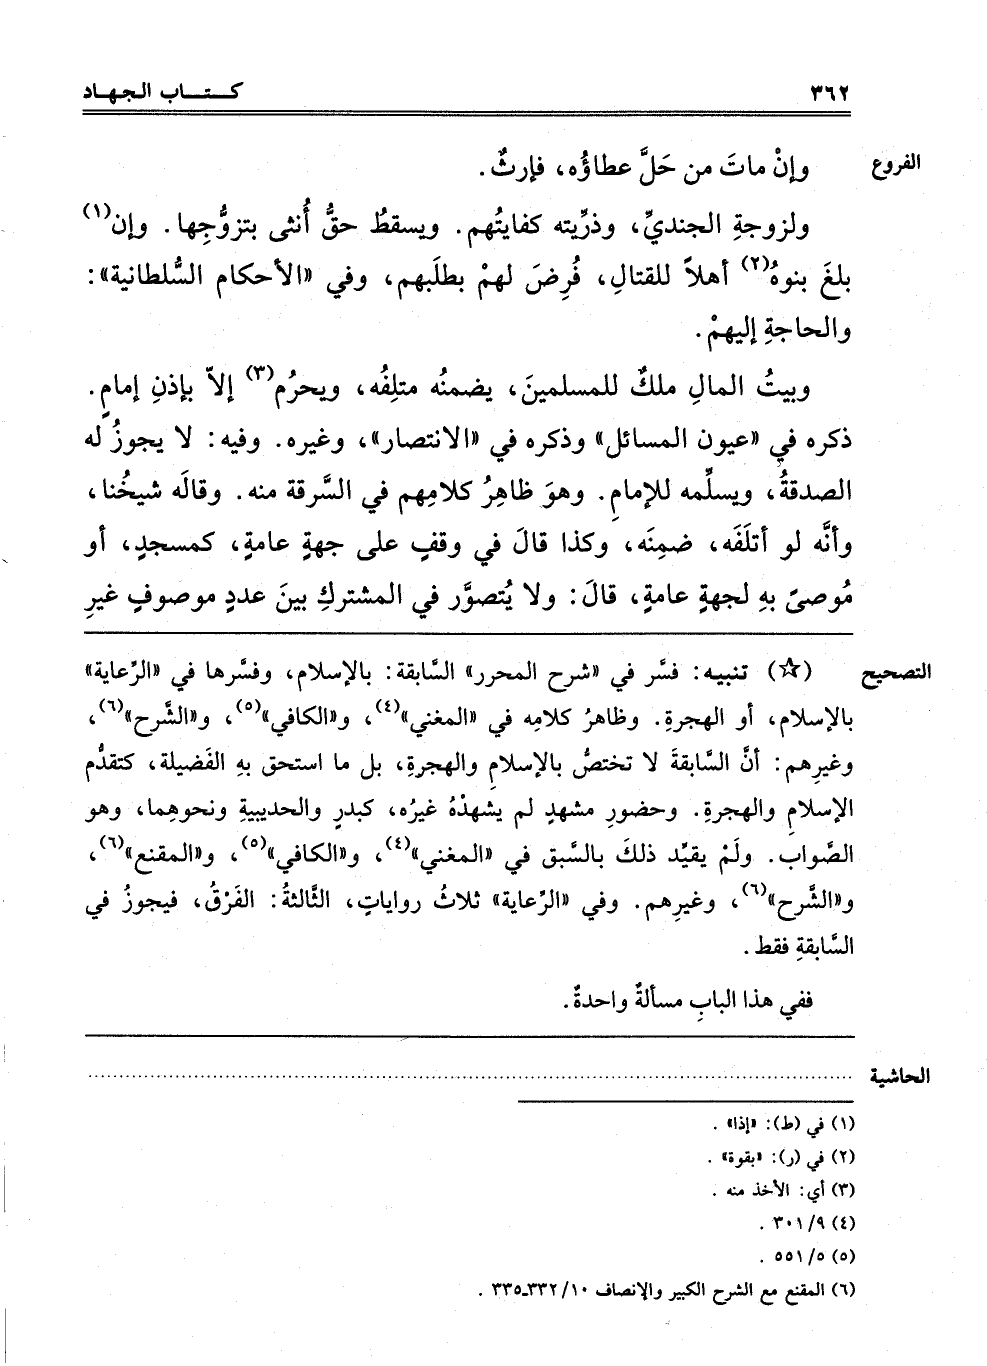 ٣٦٢
كـتـــاب الـجـهـاد
الفروع
وإنْ ماتَ من حَلَّ عطاؤُه، فإرثٌ.
ولزوجةِ الجنديِّ، وذرِّيته كفايتُهم. ويسقطُ حقُّ أُنثى بتزوُّجِها. وإن(١)
بلغَ بنوهُ(٢) أهلاً للقتالِ، فُرِضَ لهمْ بطلَبهم، وفي «الأحكام السُّلطانية»:
والحاجةِ إليهمْ.
وبيتُ المالِ ملكٌ للمسلمينَ، يضمنُه متلِفُه، ويحرُم(٣) إلاّ بإذنِ إمامٍ.
ذكره في «عيون المسائل» وذكره في «الانتصار»، وغيره. وفيه: لا يجوزُ له
الصدقةُ، ويسلِّمه للإمامِ. وهوَ ظاهِرُ كلامِهم في السَّرقة منه. وقالَه شيخُنا،
وأنَّه لو أتلَفَه، ضمِنَه، وكذا قالَ في وقفٍ على جهةٍ عامةٍ، كمسجدٍ، أو
مُوصىً بهِ لجهةٍ عامةٍ، قالَ: ولا يُتصوَّر في المشتركِ بينَ عددٍ موصوفٍ غيرِ
التصحيح
(☆) تنبيه: فسَّر في «شرح المحرر» السَّابقة: بالإسلام، وفسَّرها في «الرِّعاية»
بالإسلام، أو الهجرةِ. وظاهرُ كلامِه في «المغني»(٤)، و«الكافي»(٥)، و«الشَّرح»(٦)،
وغيرِهم: أنَّ السَّابقةَ لا تختصُّ بالإسلامِ والهجرةِ، بل ما استحق بهِ الفَضيلة، كتقدُّم
الإسلامِ والهجرةِ. وحضورِ مشهدٍ لم يشهدْهُ غيرُه، كبدرٍ والحديبيةِ ونحوِهما، وهو
الصَّواب. ولَمْ يقيِّد ذلكَ بالسَّبق في «المغني»(٤)، و«الكافي»(٥)، و«المقنع»(٦)،
و«الشَّرح»(٦)، وغيرِهم. وفي «الرِّعاية» ثلاثُ رواياتٍ، الثَّالثةُ: الفَرْقُ، فيجوزُ في
السَّابقةِ فقط.
ففي هذا البابِ مسألةٌ واحدةٌ.
الحاشية
(١) في (ط): «إذا» .
(٢) في (ر): «بقوة» .
(٣) أي: الأخذ منه .
(٤) ٣٠١/٩ .
(٥) ٥٥١/٥ .
(٦) المقنع مع الشرح الكبير والإنصاف ١٠/ ٣٣٢ـ٣٣٥ .